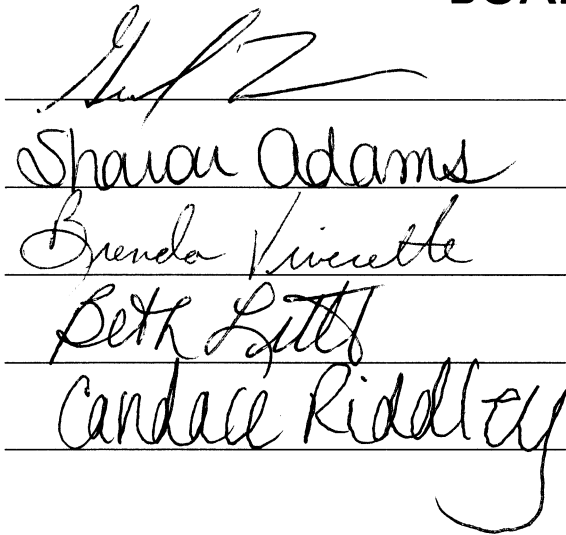 Sharon Adams
Brenda Viverette
Beth
Candace Riddley